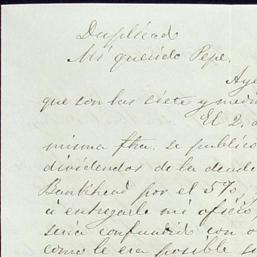 Duplicado
Mi querido Pepe.
Aye
que son las siete y medi
El 2. 
misma fha. se publico
dividendos de la deuda
Bankhead por el 5%
a entregarle mi oficio,
seria confundido con o
como le era posible